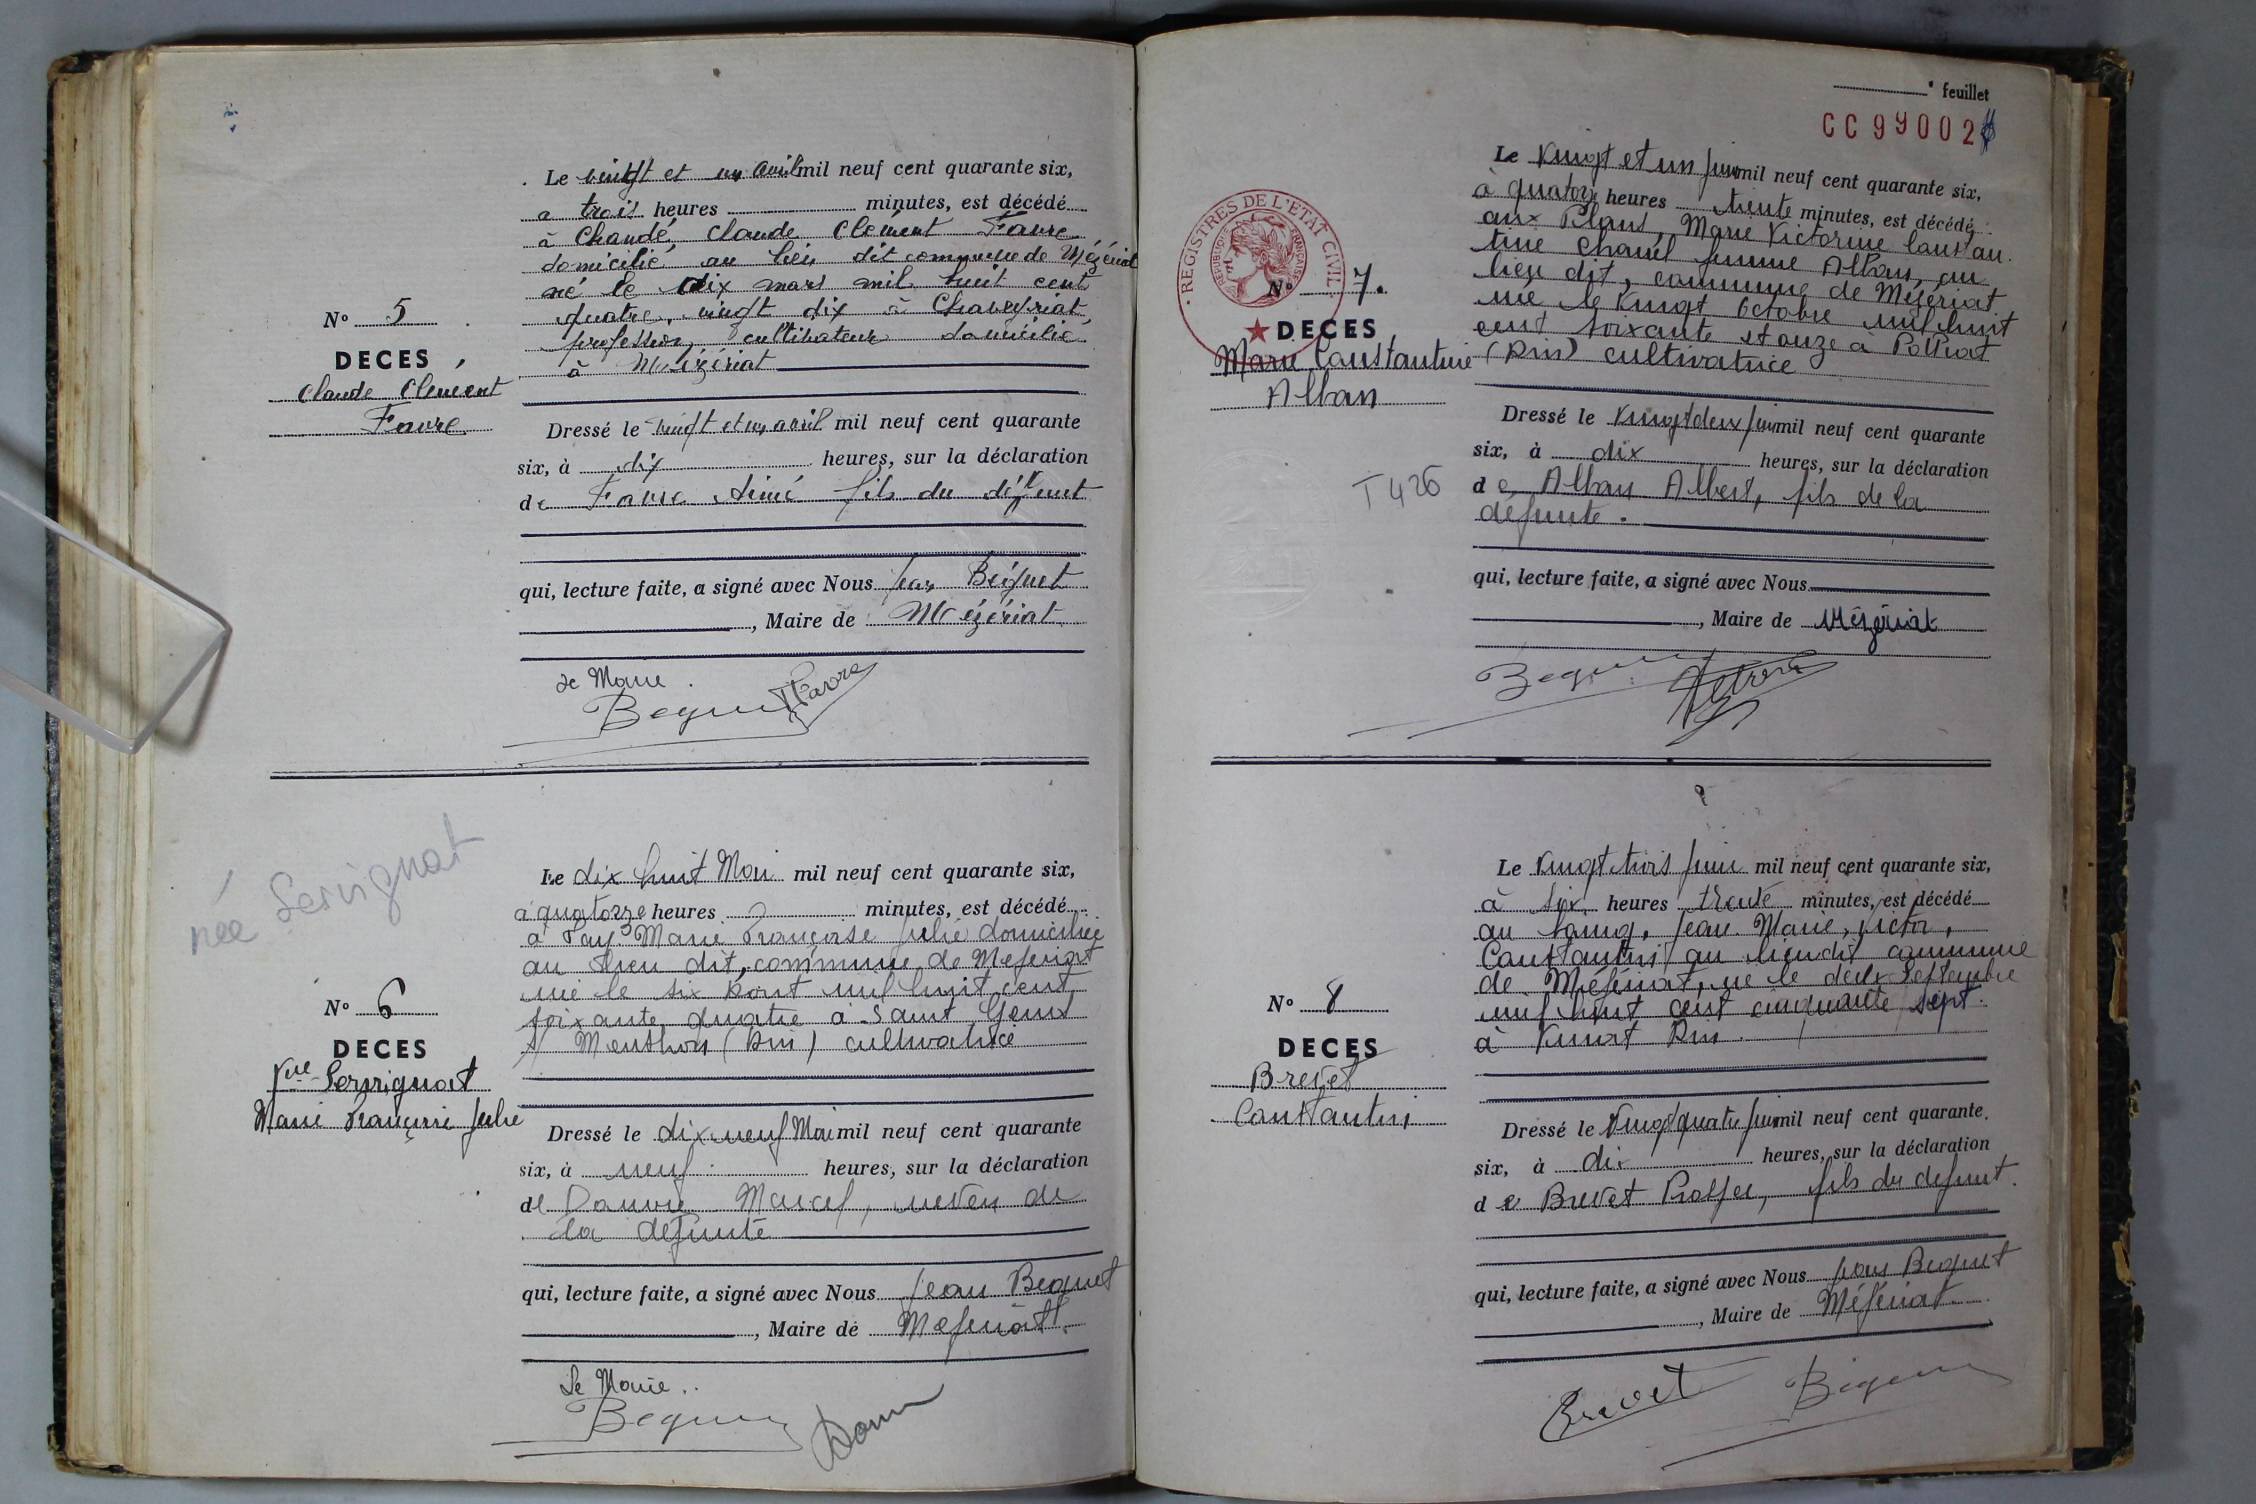 Le vingt et un avril mil neuf cent quarante six,
à trois heures minutes, est décédé
à Chandé, Claude Clément Favre
domicilié au lieu dit commune de Mézériat
né le dix mars mil huit cent
quatre vingt dix à Chaveyriat,
profession, cultivateur domicilié
à Mézériat
N° 5
DECES
Claude Clément
Favre
Dressé le vingt et un avril mil neuf cent quarante
six, à dix heures, sur la déclaration
de Favre Aimé fils du défunt
qui, lecture faite, a signé avec Nous Jean Béguet
, Maire de Mézériat
Le Maire.
Favre
née Servignat
Le dix huit Mai mil neuf cent quarante six,
à quatorze heures minutes, est décédé
à Fay Marie Françoise Julie domiciliée
au lieu dit, commune de Mezeriat
née le six Aout mil huit cent
soixante quatre à Saint Genis
s/ Menthon (Ain) cultivatrice
N° 6
DECES
Vve Servignat
Marie Françoise Julie
Dressé le dix neuf Mai mil neuf cent quarante
six, à neuf heures, sur la déclaration
de Marcel, neveu de
la defunte
qui, lecture faite, a signé avec Nous Jean Beguet
, Maire de Mezeriat.
Le Maire.
feuillet
CC99002
Le Vingt et un Juin mil neuf cent quarante six,
à quatorze heures trente minutes, est décédé
aux Plans, Marie Victorine Constan
tine Chanel femme Alban, au
lieu dit, commune de Mézériat
née le Vingt Octobre mil huit
cent soixante et onze à Polliat
(Ain) cultivatrice
REGISTRES DE L'ETAT CIVIL
REPUBLIQUE FRANÇAISE
N° 7.
DECES
Marie Constantine
Alban
T 426
Dressé le Vingt deux Juin mil neuf cent quarante
six, à dix heures, sur la déclaration
de Alban Albert, fils de la
défunte.
qui, lecture faite, a signé avec Nous
, Maire de Mézériat
Le Vingt trois Juin mil neuf cent quarante six,
à six heures trente minutes, est décédé
au Jean Marie, Victor,
Constantin au lieu dit commune
de Mézériat, né le deux Septembre
mil huit cent cinquante sept
à Ain.
N° 8
DECES
Brevet
Constantin
Dressé le Vingt quatre Juin mil neuf cent quarante
six, à dix heures, sur la déclaration
de Brevet Prosper, fils du defunt.
qui, lecture faite, a signé avec Nous Jean Beguet
, Maire de Mézériat
Brevet